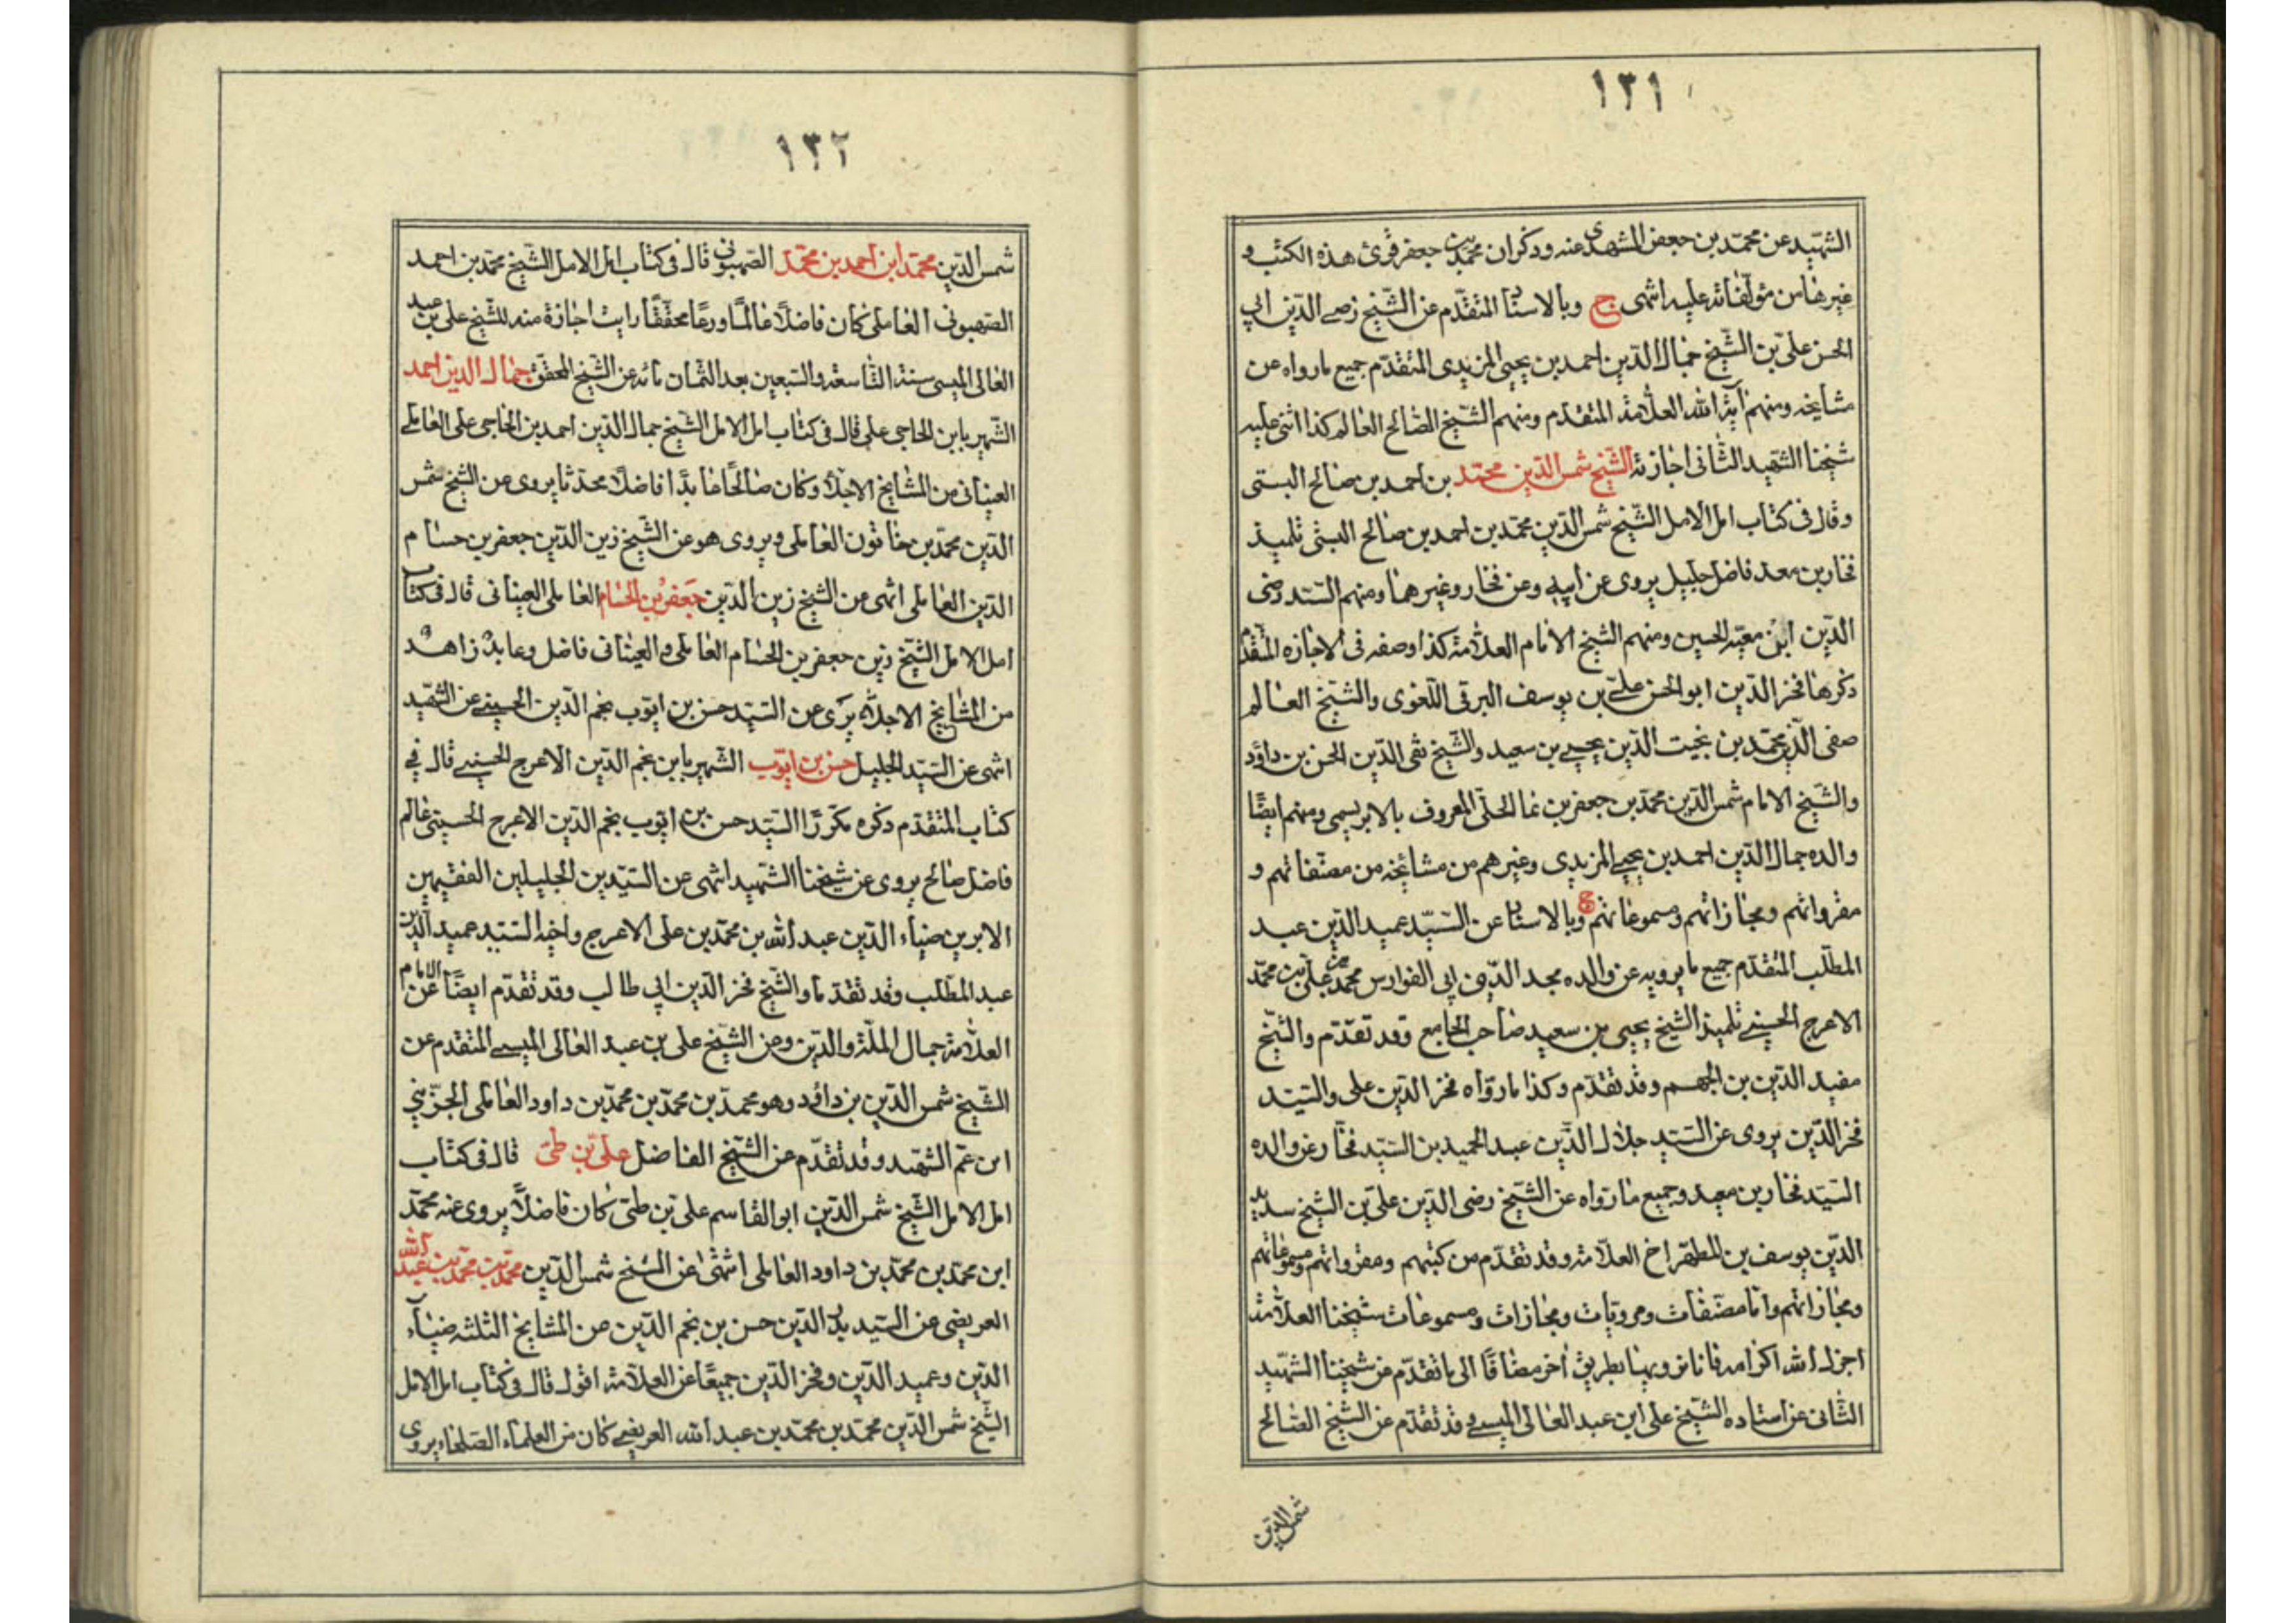 ١٣١
الشهيد عن محمد بن جعفر المشهدى عنه وذكر ان محمد بن جعفر قرئ هذه الكتب و
غيرها من مؤلفاته عليه انتهى ح وبالاسناد المتقدم عن الشيخ رضى الدين ابى
الحسن على بن الشيخ جمال الدين احمد بن يحيى المزيدى المتقدم جميع ما رواه عن
مشايخه ومنهم آية الله العلامة المتقدم ومنهم الشيخ الصالح العالم كذا اثنى عليه
شيخنا الشهيد الثانى اجازته الشيخ شمس الدين محمد بن احمد بن صالح البستى
وقال فى كتاب امل الامل الشيخ شمس الدين محمد بن احمد بن صالح البستى تلميذ
فخار بن معد فاضل جليل يروى عن ابيه وعن فخار وغيرهما ومنهم السيد رضى
الدين ابن معيه الحسين ومنهم الشيخ الامام العلامة كذا وصفه فى الاجازه المتقدم
ذكرها فخر الدين ابو الحسن على بن يوسف البرقى اللغوى والشيخ العالم
صفى الدين محمد بن نجيب الدين يحيى بن سعيد والشيخ تقى الدين الحسن بن داود
والشيخ الامام شمس الدين محمد بن جعفر بن نما الحلى المعروف بالابريسمى ومنهم ايضًا
والده جمال الدين احمد بن يحيى المزيدى وغيرهم من مشايخه من مصنفاتهم و
مقرواتهم ومجازاتهم ومسموعاتهم ح وبالاسناد عن السيد عميد الدين عبد
المطلب المتقدم جميع ما يرويه عن والده مجد الدين ابى الفوارس محمد بن على بن محمد
الاعرج الحسينى تلميذ الشيخ يحيى بن سعيد صاحب الجامع وقد تقدم والشيخ
مفيد الدين بن الجهم وقد تقدم وكذا ما رواه فخر الدين على والسيد
فخر الدين يروى عن السيد جلال الدين عبد الحميد بن السيد فخار عن والده
السيد فخار بن معد وجميع ما رواه عن الشيخ رضى الدين على بن الشيخ سديد
الدين يوسف بن المطهر اخ العلامة وقد تقدم من كتبهم ومقرواتهم ومسموعاتهم
ومجازاتهم واما مصنفات ومرويات ومجازات ومسموعات شيخنا العلامة
اجزل الله اكرامه فانا نرويها بطريق اخر مضافًا الى ما تقدم من شيخنا الشهيد
الثانى عن استاده الشيخ على ابن عبد العالى الميسى وقد تقدم عن الشيخ الصالح
شمس الدين
١٣٢
شمس الدين محمد ابن احمد بن محمد الصهيونى قال فى كتاب امل الامل الشيخ محمد بن احمد
الصهيونى العاملى كان فاضلًا عالمًا ورعًا محققًا رايت اجازة منه للشيخ على بن عبد
العالى الميسى سنة التاسعة والسبعين بعد الثمان مائه عن الشيخ المحقق جمال الدين احمد
الشهير بابن الحاجى على قال فى كتاب امل الامل الشيخ جمال الدين احمد بن الحاجى على العاملى
العيناثى من المشايخ الاجلاء وكان صالحًا عابدًا فاضلًا محدثا يروى عن الشيخ شمس
الدين محمد بن خاتون العاملى ويروى هو عن الشيخ زين الدين جعفر بن حسام
الدين العاملى انتهى عن الشيخ زين الدين جعفر بن الحسام العاملى العيناثى قال فى كتاب
امل الامل الشيخ زين جعفر بن الحسام العاملى والعيناثى فاضل وعابدٌ زاهدٌ
من المشايخ الاجلاء يرى عن السيد حسن بن ايوب نجم الدين الحسينى عن الشهيد
انتهى عن السيد الجليل حسن بن ايوب الشهير بابن نجم الدين الاعرج الحسينى قال فى
كتاب المتقدم ذكره مكررًا السيد حسن بن ايوب نجم الدين الاعرج الحسينى عالم
فاضل صالح يروى عن شيخنا الشهيد انتهى عن السيدين الجليلين الفقيهين
الابرين ضياء الدين عبد الله بن محمد بن على الاعرج واخيه السيد عميد الدين
عبد المطلب وقد تقدما والشيخ فخر الدين ابى طالب وقد تقدم ايضًا عن الامام
العلامة جمال الملة والدين وعن الشيخ على بن عبد العالى الميسى المتقدم عن
الشيخ شمس الدين بن داود وهو محمد بن محمد بن محمد بن داود العاملى الجزينى
ابن عم الشهيد وقد تقدم عن الشيخ الفاضل على بن طى قال فى كتاب
امل الامل الشيخ شمس الدين ابو القاسم على بن طى كان فاضلًا يروى عنه محمد
ابن محمد بن محمد بن داود العاملى انتهى عن الشيخ شمس الدين محمد بن محمد بن عبد الله
العريضى عن السيد بدر الدين حسن بن نجم الدين عن المشايخ الثلثه ضياء
الدين وعميد الدين وفخر الدين جميعًا عن العلامة اقول قال فى كتاب امل الامل
الشيخ شمس الدين محمد بن محمد بن عبد الله العريضى كان من العلماء الصلحاء يروى